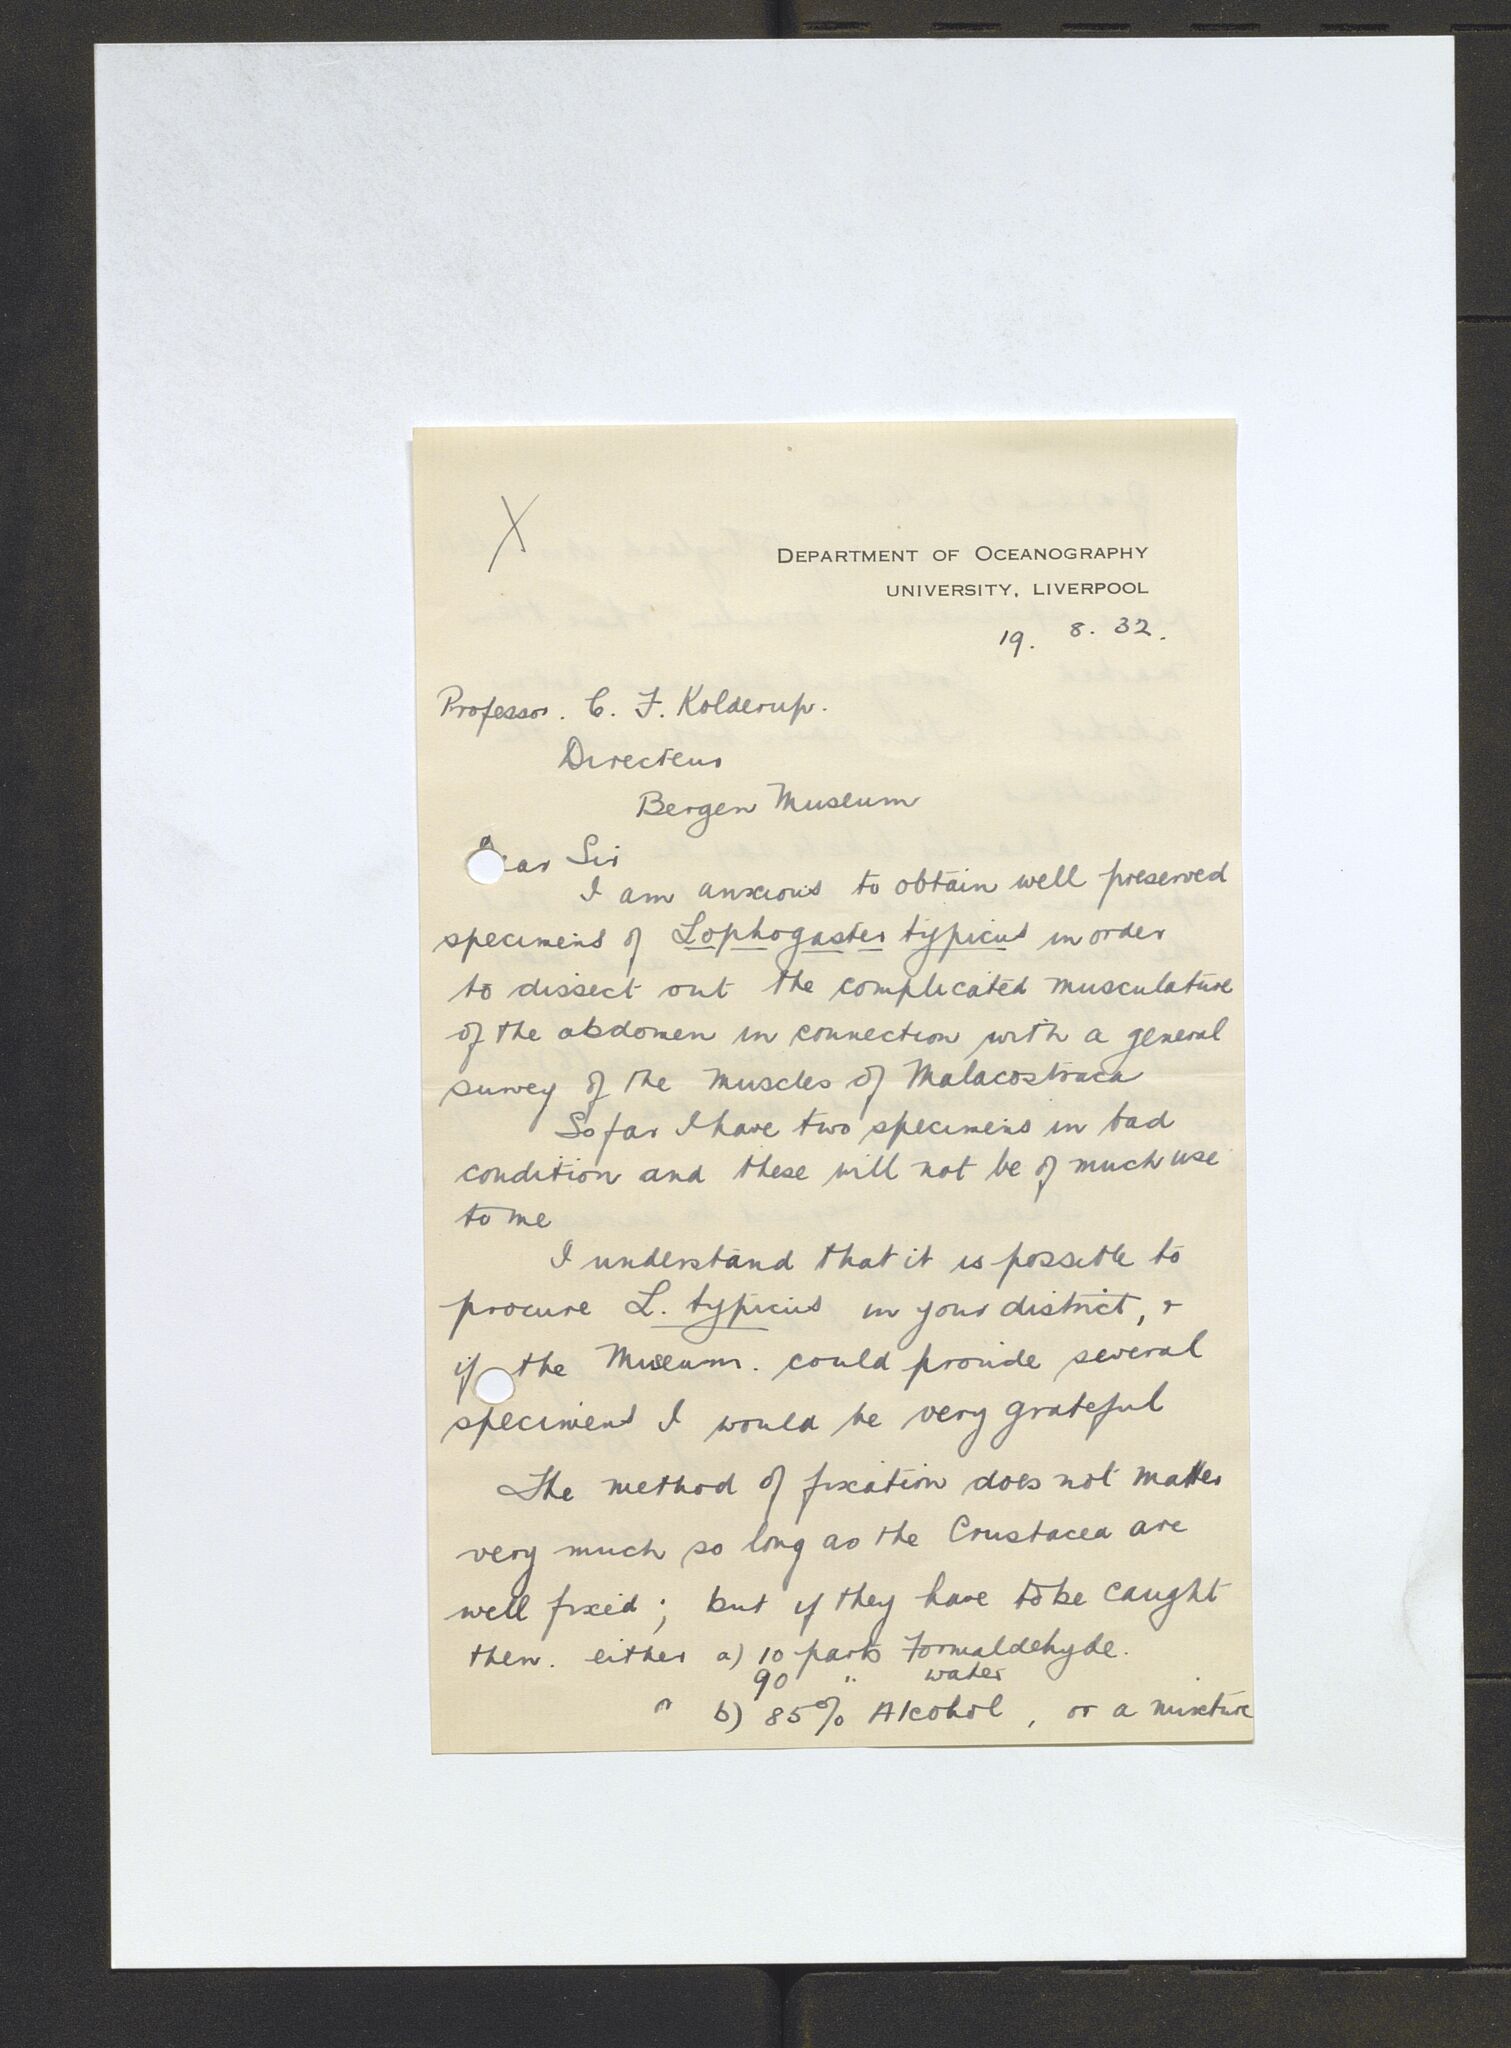 X
DEPARTMENT OF OCEANOGRAPHY
UNIVERSITY, LIVERPOOL
19. 8. 32.
Professor. C. F. Kolderup.
Directeur
Bergen Museum
Dear Sir
I am anxious to obtain well preserved
specimens of Lophogaster typicus in order
to dissect out the complicated musculature
of the abdomen in connection with a general
survey of the muscles of Malacostraca
So far I have two specimens in bad
condition and these will not be of much use
to me
I understand that it is possible to
procure L. typicus in your district, &
if the Museum. could provide several
specimens I would be very grateful
The method of fixation does not matter
very much so long as the Crustacea are
well fixed; but if they have to be caught
then. either a) 10 parts Formaldehyde.
90 " water
or b) 85% Alcohol, or a mixture